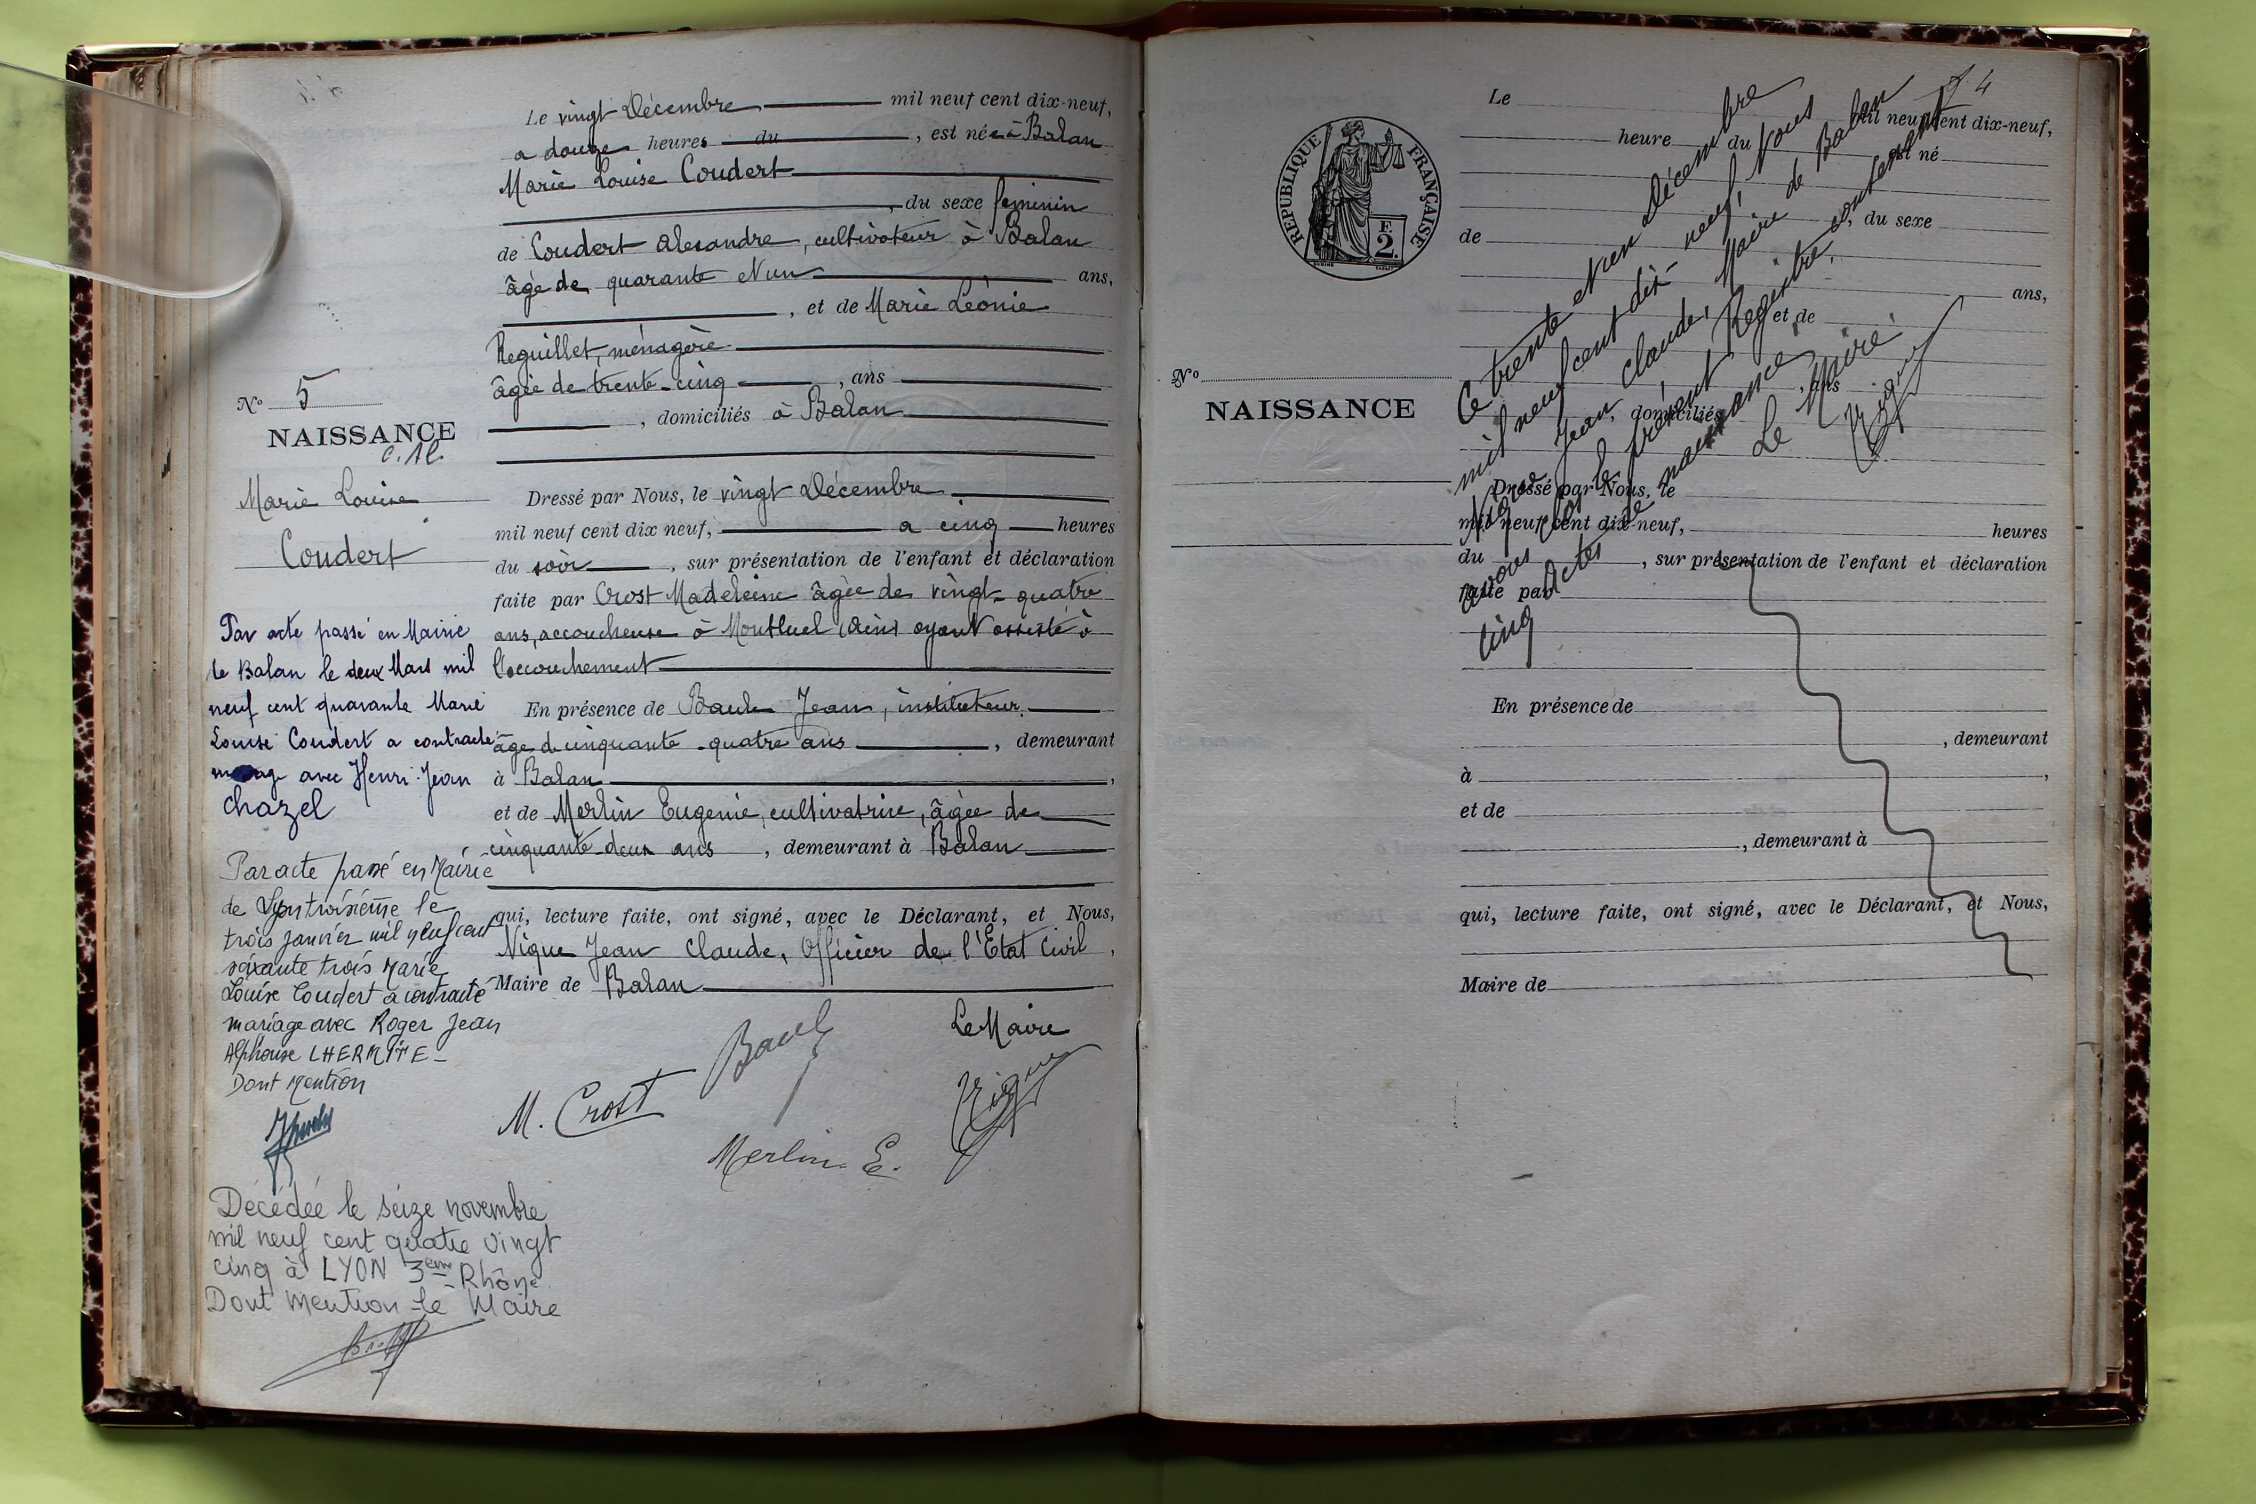 Le vingt Décembre mil neuf cent dix-neuf,
a douze heures du , est née à Balan
Marie Louise Coudert
, du sexe feminin
de Coudert Alexandre, cultivateur à Balan
âgé de quarante et un ans,
, et de Marie Léonie
Reguillet, ménagère
âgée de trente-cinq , ans
, domiciliés à Balan
Dressé par Nous, le vingt Décembre
mil neuf cent dix neuf, a cinq heures
du soir , sur présentation de l'enfant et déclaration
faite par Crost Madeleine âgée de vingt-quatre
ans, accoucheuse à Montluel (Ain) ayant assisté à
l'accouchement
En présence de Baule Jean, instituteur
âgé de cinquante-quatre ans , demeurant
à Balan ,
et de Merlin Eugenie, cultivatrice, âgée de
cinquante-deux ans , demeurant à Balan
qui, lecture faite, ont signé, avec le Déclarant, et Nous,
Nique Jean Claude, Officier de l'Etat Civil ,
Maire de Balan
Le Maire
M. Crost
Merlin E.
Nº 5
NAISSANCE
Marie Louise
Coudert
Par acte passé en Mairie
de Balan le deux Mars mil
neuf cent quarante Marie
Louise Coudert a contracté
mariage avec Henri Jean
Chazel
Par acte passé en Mairie
de Lyon troisième le
trois janvier mil neuf cent
soixante trois Marie
Louise Coudert a contracté
mariage avec Roger Jean
Alphonse LHERMITE -
Dont Mention
Décédée le seize novembre
mil neuf cent quatre vingt
cinq à LYON 3ème Rhône
Dont Mention le Maire
4
RÉPUBLIQUE FRANÇAISE
F.
2.
Nº
NAISSANCE
Le
mil neuf cent dix-neuf,
heure du
est né
, du sexe
de
ans,
, et de
, ans
, domiciliés
Dressé par Nous, le
mil neuf cent dix-neuf, heures
du , sur présentation de l'enfant et déclaration
faite par
En présence de
, demeurant
à ,
et de
, demeurant à
qui, lecture faite, ont signé, avec le Déclarant, et Nous,
Maire de
Ce trente et un Décembre
mil neuf cent dix-neuf, Nous
Nique Jean Claude, Maire de Balan
avons clos le présent Registre contenant
cinq Actes de naissance.
Le Maire